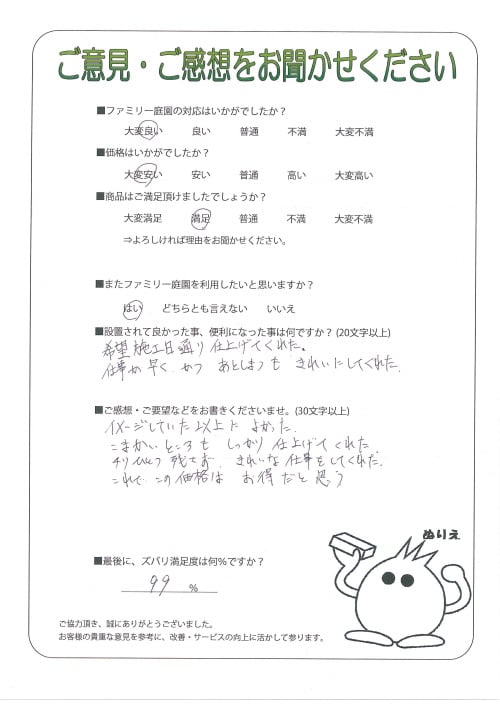 ご意見・ご感想をお聞かせください
■ファミリー庭園の対応はいかがでしたか？
大変良い 良い 普通 不満 大変不満
■価格はいかがでしたか？
大変安い 安い 普通 高い 大変高い
■商品はご満足頂けましたでしょうか？
大変満足 満足 普通 不満 大変不満
⇒よろしければ理由をお聞かせください。
■またファミリー庭園を利用したいと思いますか？
はい どちらとも言えない いいえ
■設置されて良かった事、便利になった事は何ですか？(20文字以上)
希望施工日通り仕上げてくれた。
仕事が早く、かつ あとしまつも きれいにしてくれた.
■ご感想・ご要望などをお書きくださいませ。(30文字以上)
イメージしていた以上に よかった.
こまかいところも しっかり仕上げてくれた.
チリひとつ残さず きれいな仕事をしてくれた.
これで この価格は お得だと思う
ぬりえ
■最後に、ズバリ満足度は何%ですか？
99 %
ご協力頂き、誠にありがとうございました。
お客様の貴重な意見を参考に、改善・サービスの向上に活かして参ります。